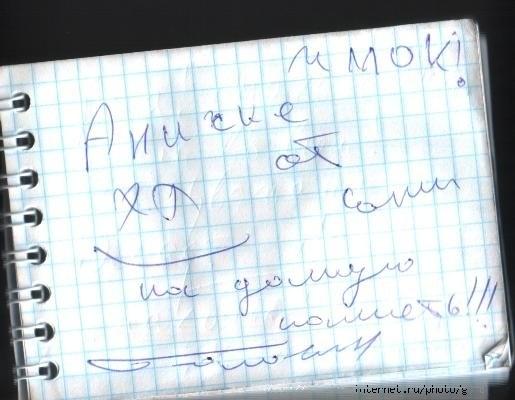 и мок!
Аничке
от
ХП
Сани
на долгую
память!!!
internet.ru/photo/g